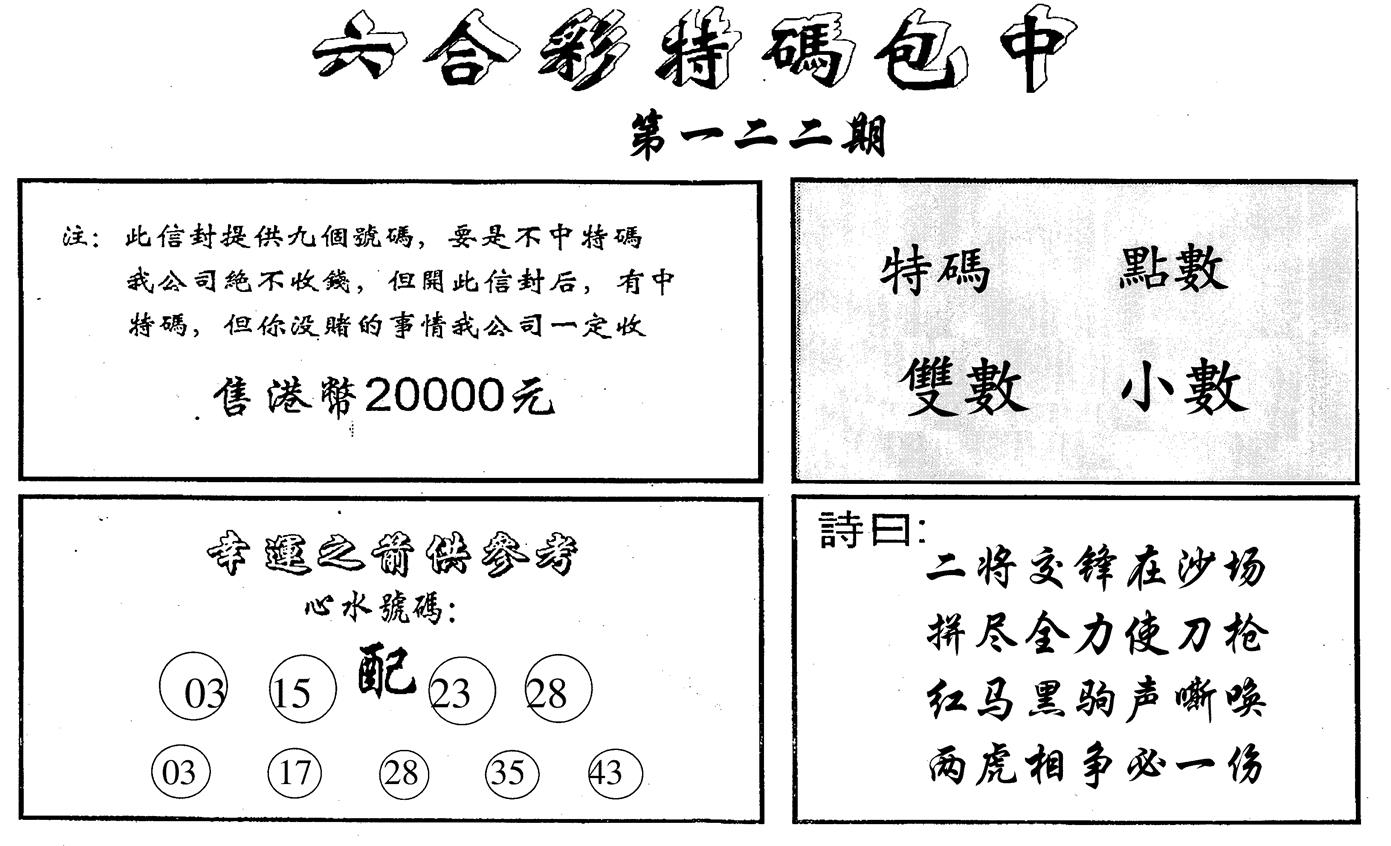 六合彩特碼包中
第一二二期
注：此信封提供九個號碼，要是不中特碼
我公司絕不收錢，但開此信封后，有中
特碼，但你没賭的事情我公司一定收
售港幣20000元
特碼 點數
雙數 小數
幸運之箭供參考
心水號碼：
03 15 配 23 28
03 17 28 35 43
詩曰：
二将交锋在沙场
拼尽全力使刀枪
红马黑驹声嘶唤
两虎相争必一伤